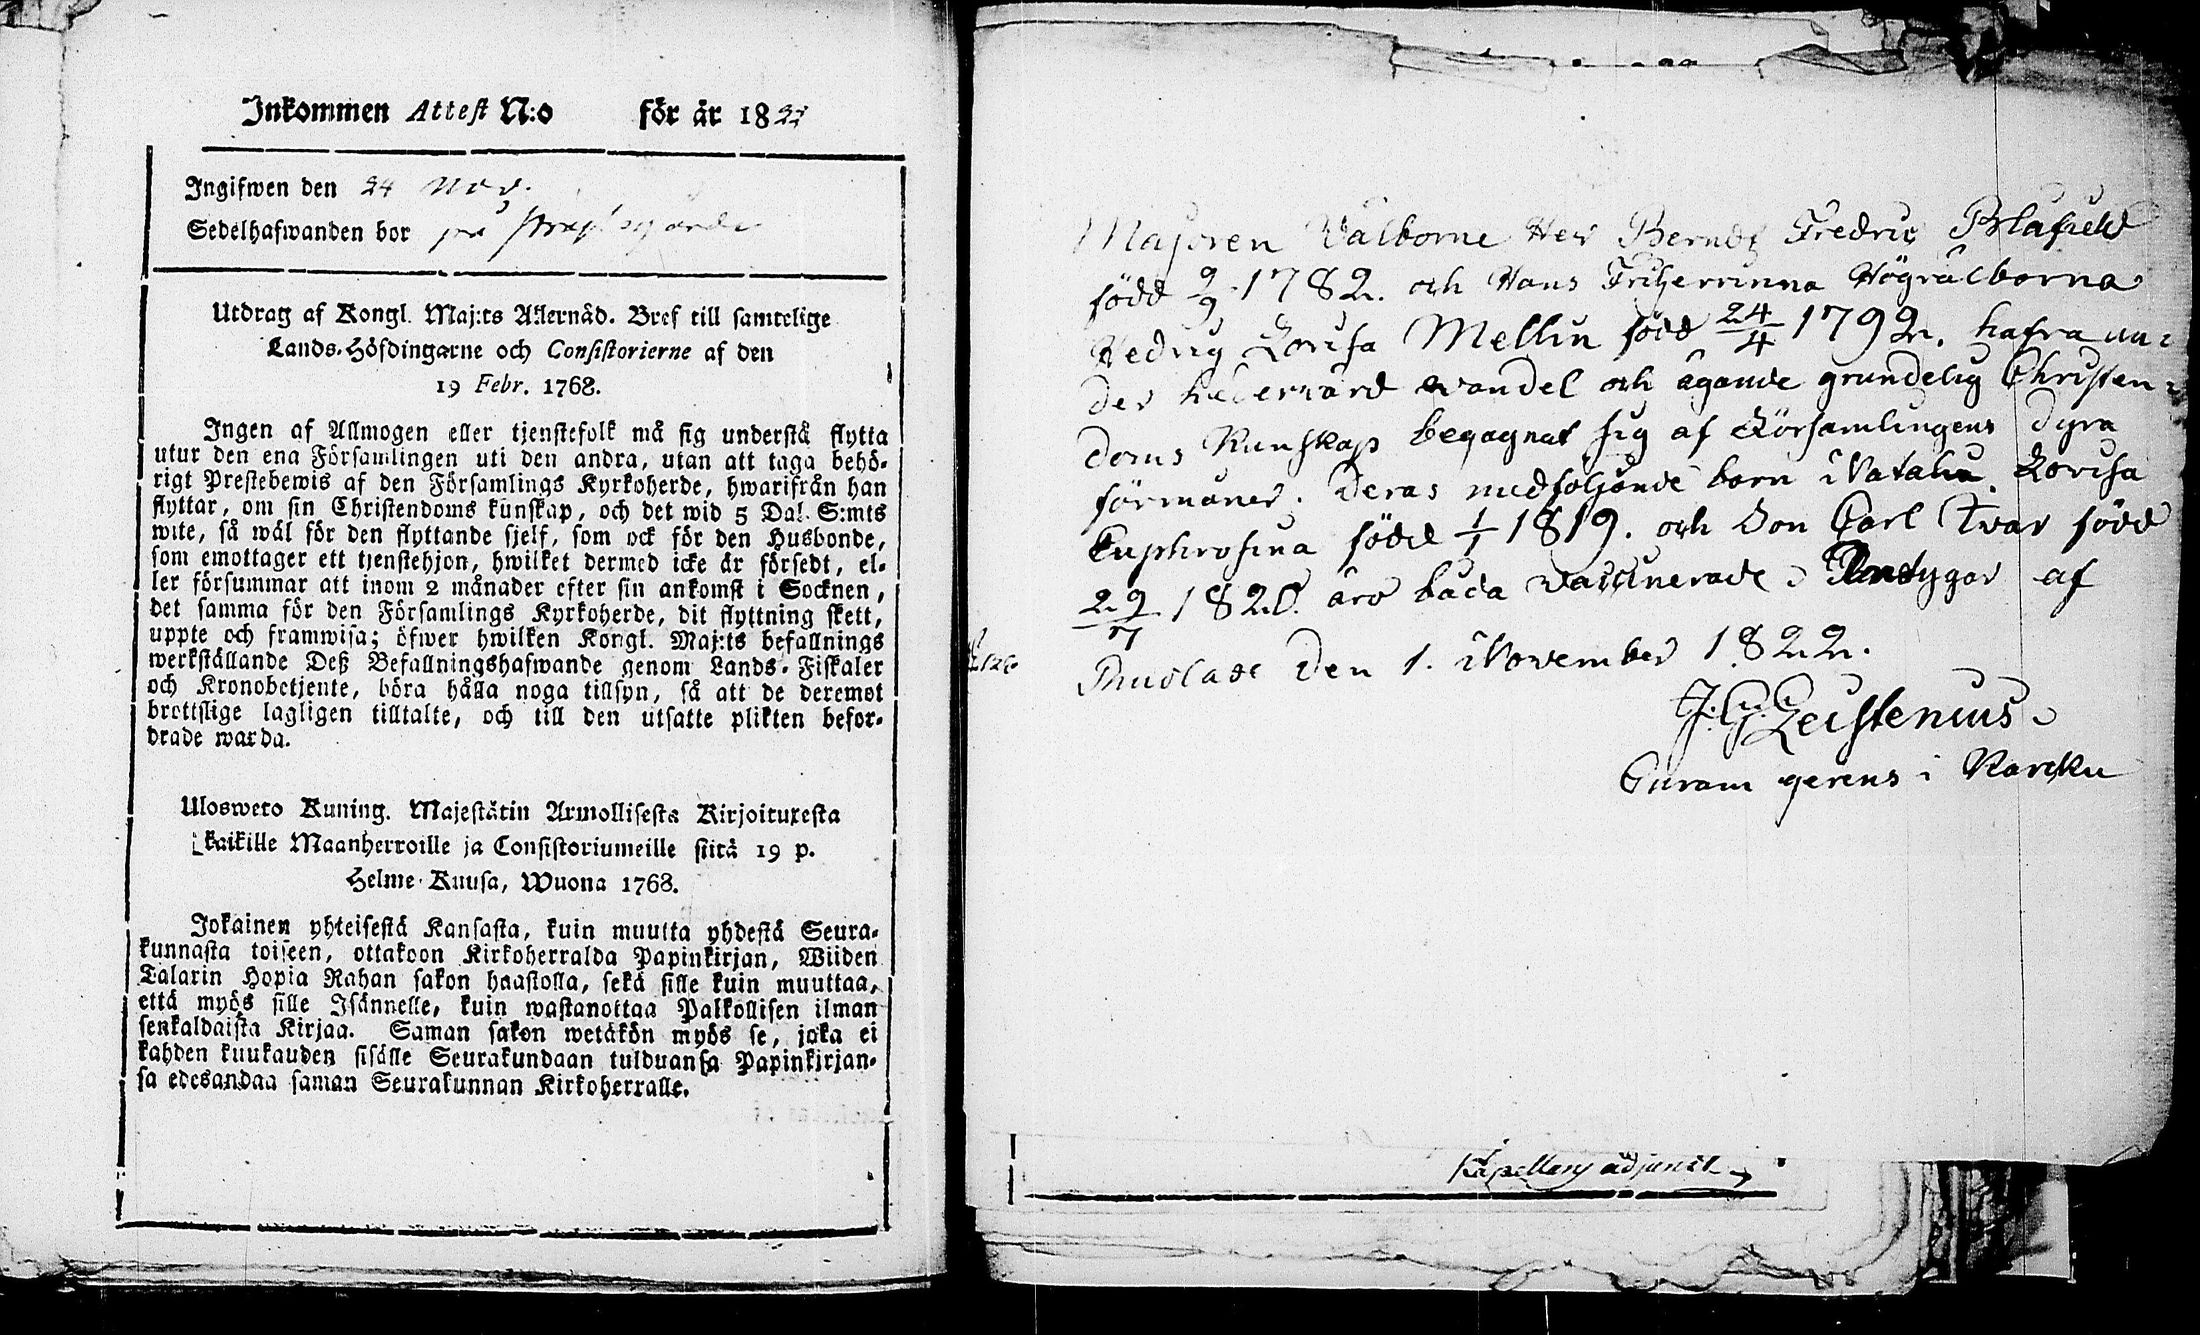 Inkommen Attest N:o för år 1822
Ingifwen den 24 Nov.
Sedelhafwanden bor på
Utdrag af Kongl. Maj:ts Allernåd. Bref till samtelige
Lands-Höfdingarne och Consistorierne af den
19 Febr. 1768.
Ingen af Allmogen eller tjenstefolk må sig understå flytta
utur den ena Församlingen uti den andra, utan att taga behö-
rigt Prestebewis af den Församlings Kyrkoherde, hwarifrån han
flyttar, om sin Christendoms kunskap, och det wid 5 Dal. S:mts
wite, så wäl för den flyttande sjelf, som ock för den Husbonde,
som emottager ett tjenstehjon, hwilket dermed icke är försedt, el-
ler försummar att inom 2 månader efter sin ankomst i Socknen,
det samma för den Församlings Kyrkoherde, dit flyttning skett,
uppte och framwisa; öfwer hwilken Kongl. Maj:ts befallnings
werkställande Deß Befallningshafwande genom Lands-Fiskaler
och Kronobetjente, böra hålla noga tillsyn, så att de deremot
brottslige lagligen tilltalte, och till den utsatte plikten befor-
drade warda.
Ulosweto Kuning. Majestätin Armollisesta Kirjoituxesta
kaikille Maanherroille ja Consistoriumeille siitä 19 p.
Helme-Kuusa, Wuona 1768.
Jokainen yhteisestä Kansasta, kuin muutta yhdestä Seura-
kunnasta toiseen, ottakoon Kirkoherralda Papinkirjan, Wiiden
Talarin Hopia Rahan sakon haastolla, sekä sille kuin muuttaa,
että myös sille Isännelle, kuin wastanottaa Palkollisen ilman
senkaldaista Kirjaa. Saman sakon wetäkön myös se, joka ei
kahden kuukauden sisälle Seurakundaan tulduansa Papinkirjan-
sa edesandaa saman Seurakunnan Kirkoherralle.
Majoren Välborne Her Berndt Fredric Blåfield
född 2/9 1782. och Hans Friherrinna Högvälborna
Hedvig Lovisa Mellin född 24/4 1792. hafva un=
der hedervärd vandel och ägande grundelig Christen=
doms Kunskap begagnat sig af Församlingens dyra
förmåner. Deras medföljande barn Natalia Lovisa
Euphrosina född 1/1 1819. och Son Carl Ivar född
29/7 1820. äro båda vaccinerade. Intygar af
den 1. November 1822.
J. G. Leistenius.
Curam gerens i Karisku
Kapellans adjunct